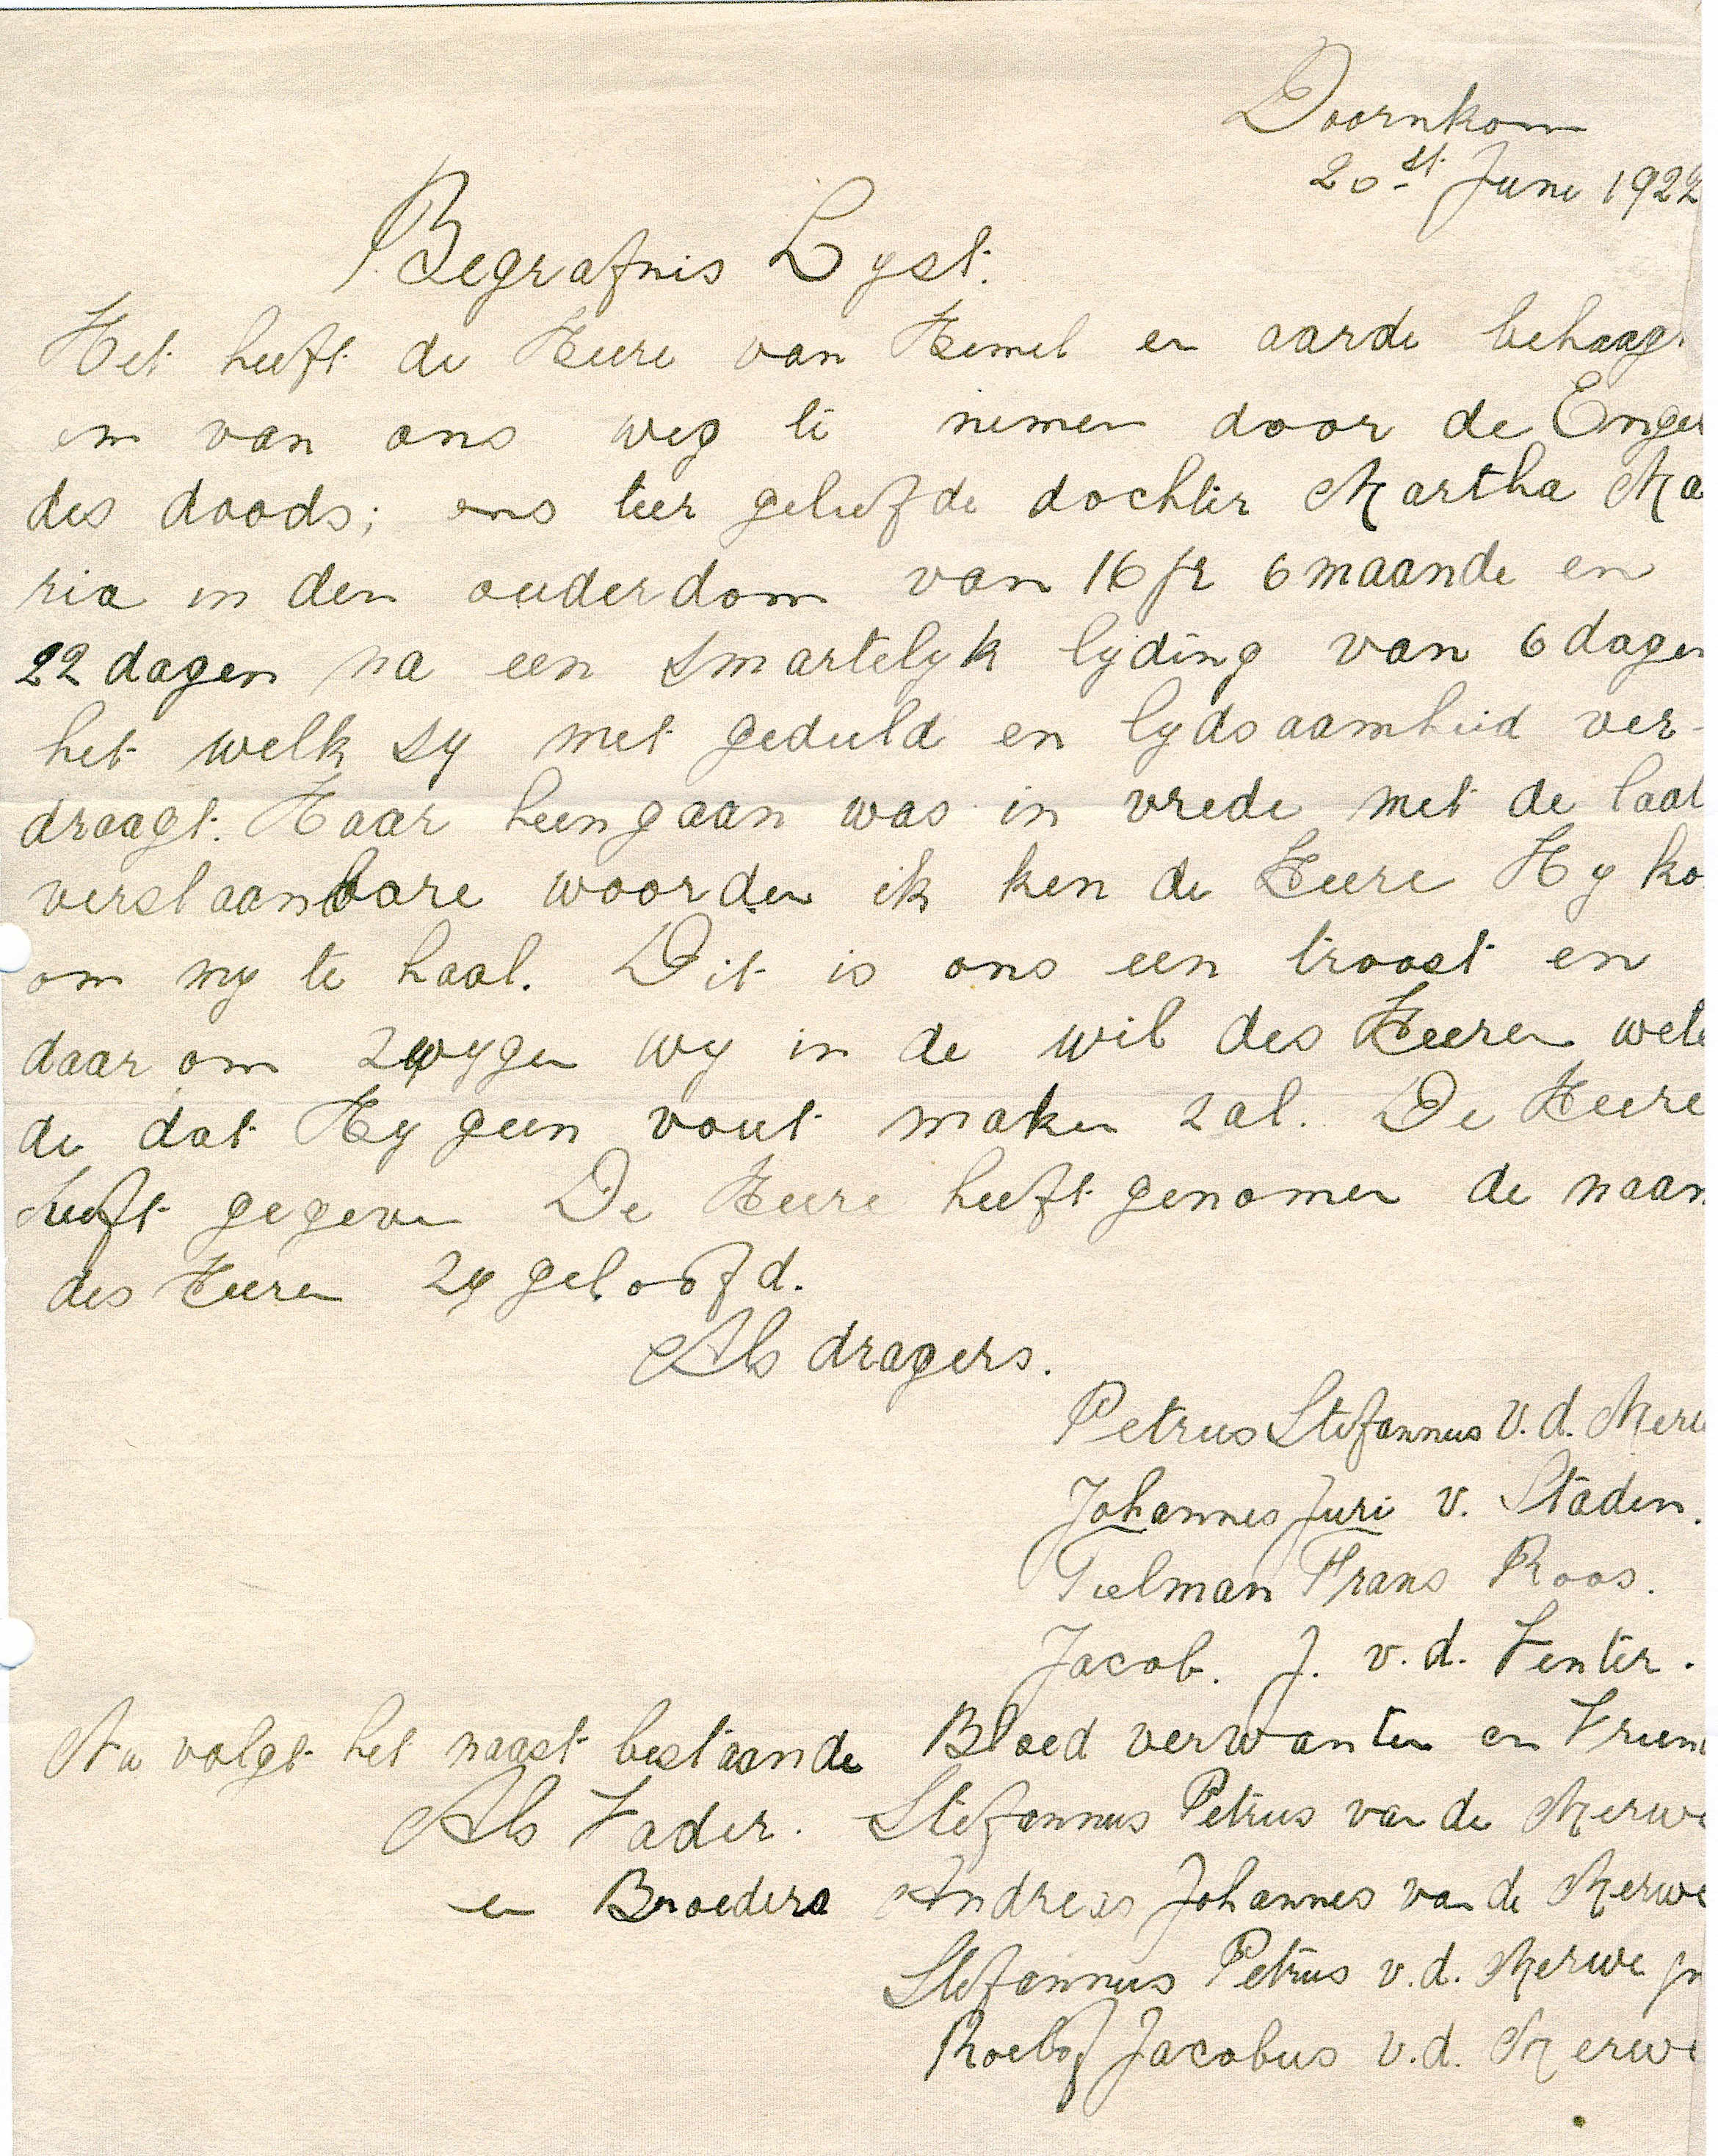 Doornkom
20st Junie 1922
Begrafnis Lyst.
Het heeft de Heere van Hemel en aarde behaagt
om van ons weg te nemen door de Engel
des doods; ons teer geliefde dochter Martha Ma
ria in den ouderdom van 16 jr 6 maande en
22 dagen na een smartelyk lyding van 6 dagen
het welk sy met geduld en lydsaamheid ver-
draagt. Haar heengaan was in vrede met de laat
verstaanbare woorden ik ken de Heere Hy ko
om my te haal. Dit is ons een troost en
daar om zwygen wy in de wil des Heeren wete
de dat Hy geen vout maken zal. De Heere
heeft gegeven De Heere heeft genomen de naam
des Heeren zy geloofd.
Als dragers.
Petrus Stefannus v.d. Merw
Johannes Juri v. Staden.
Tielman Frans Roos.
Jacob. J. v.d. Venter.
Nu volgt het naast bestaande Bloed verwanten en Vriend
Als Vader. Stefannus Petrus van de Merwe
en Broeders Andreas Johannes van de Merwe
Stefannus Petrus v.d. Merwe jn
Roelof Jacobus v.d. Merwe